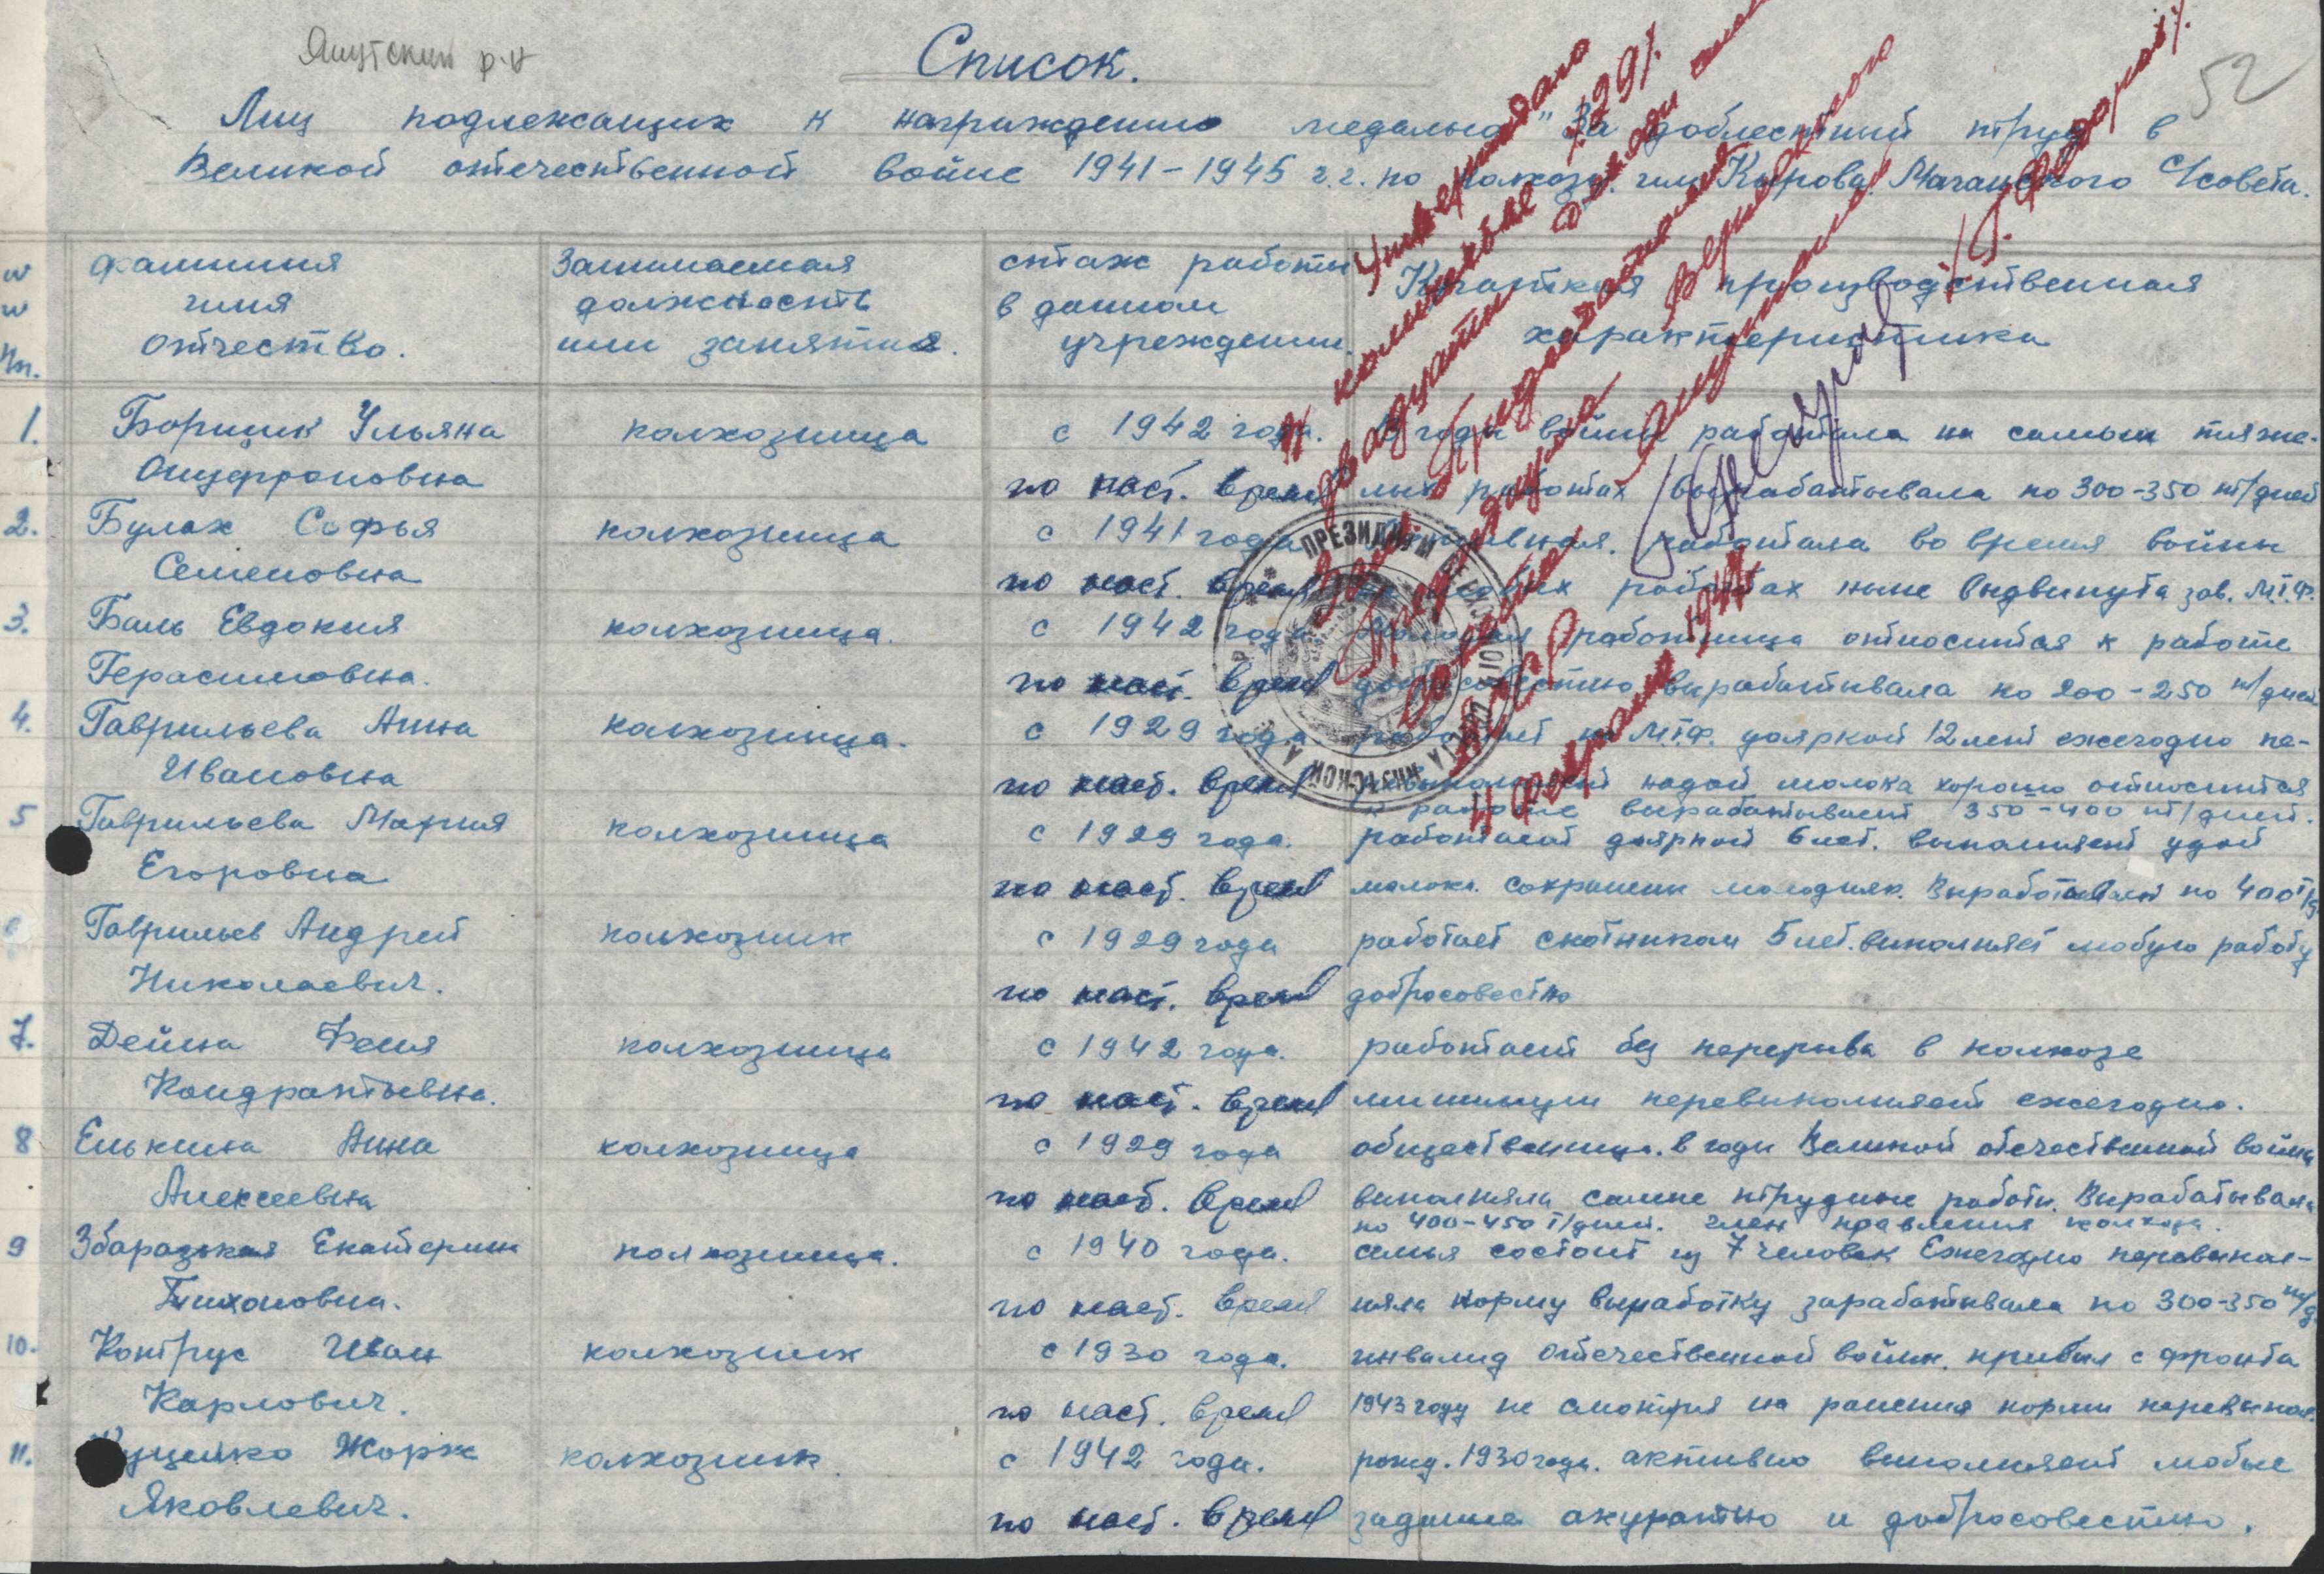 Якутский р-н
52
Список.
Лиц подлежащих к награждению медалью "За доблестный труд в
Великой отечественной войне 1941-1945 г.г. по колхозу им Кирова Маганского С/совета.
Утверждаю
в количестве /29/
двадцати девяти человек
Зам. Председателя
Президиума Верховного
Совета Якутской
АССР
4 февраля 1947
ПРЕЗИДИУМ ВЕРХОВНОГО СОВЕТА ЯКУТСКОЙ А.С.С.Р.
№ № пп. фамилия имя отчество. Занимаемая должность или занятия. стаж работы в данном учреждении. Краткая производственная характеристика
1. Борищик Ульяна колхозница с 1942 года. В годы войны работала на самых тяже-
по наст. время лых работах вырабатывала по 300-350 т/дней
2. Булах Софья колхозница с 1941 года работала во время войны
Семеновна по наст. время работах ныне выдвинута зав. М.Т.Ф.
3. Баль Евдокия колхозница. с 1942 года работница относится к работе
Герасимовна. по наст. время добросовестно вырабатывала по 200-250 т/дней
4. Гаврильева Анна колхозница. с 1929 года работает на М.Т.Ф. дояркой 12 лет ежегодно пе-
Ивановна по наст. время ревыполняет надой молока хорошо относится
к работе вырабатывает 350-400 т/дней.
5 Гаврильева Мария колхозница с 1929 года. работает дояркой 6 лет. выполняет удой
Егоровна по наст. время молока. сохранении молодняк. Вырабатывает по 400 т/д
6 Гаврильев Андрей колхозник с 1929 года работает скотником 5 лет. выполняет любую работу
Николаевич. по наст. время добросовестно
7. Дейна Феня колхозница с 1942 года. работает без перерыва в колхозе
Кондратьевна. по наст. время минимум перевыполняет ежегодно.
8 Елькина Анна колхозница с 1929 года общественница. в годы Великой отечественной войны
Алексеевна по наст. время выполняла самые трудные работы. Вырабатывала
по 400-450 т/дней. член правления колхоза.
9 Збаразская Екатерина колхозница. с 1940 года. семья состоит из 7 человек Ежегодно перевыпол-
Тихоновна. по наст. время няла норму выработку зарабатывала по 300-350 т/д
10. Контрус Иван колхозник с 1930 года. инвалид Отечественной войны. прибыл с фронта
Карлович. по наст. время 1943 году не смотря на ранения нормы перевыпол
11. Жорж колхозник. с 1942 года. рожд. 1930 года. активно выполняет любые
Яковлевич. по наст. время задание акуратно и добросовестно.